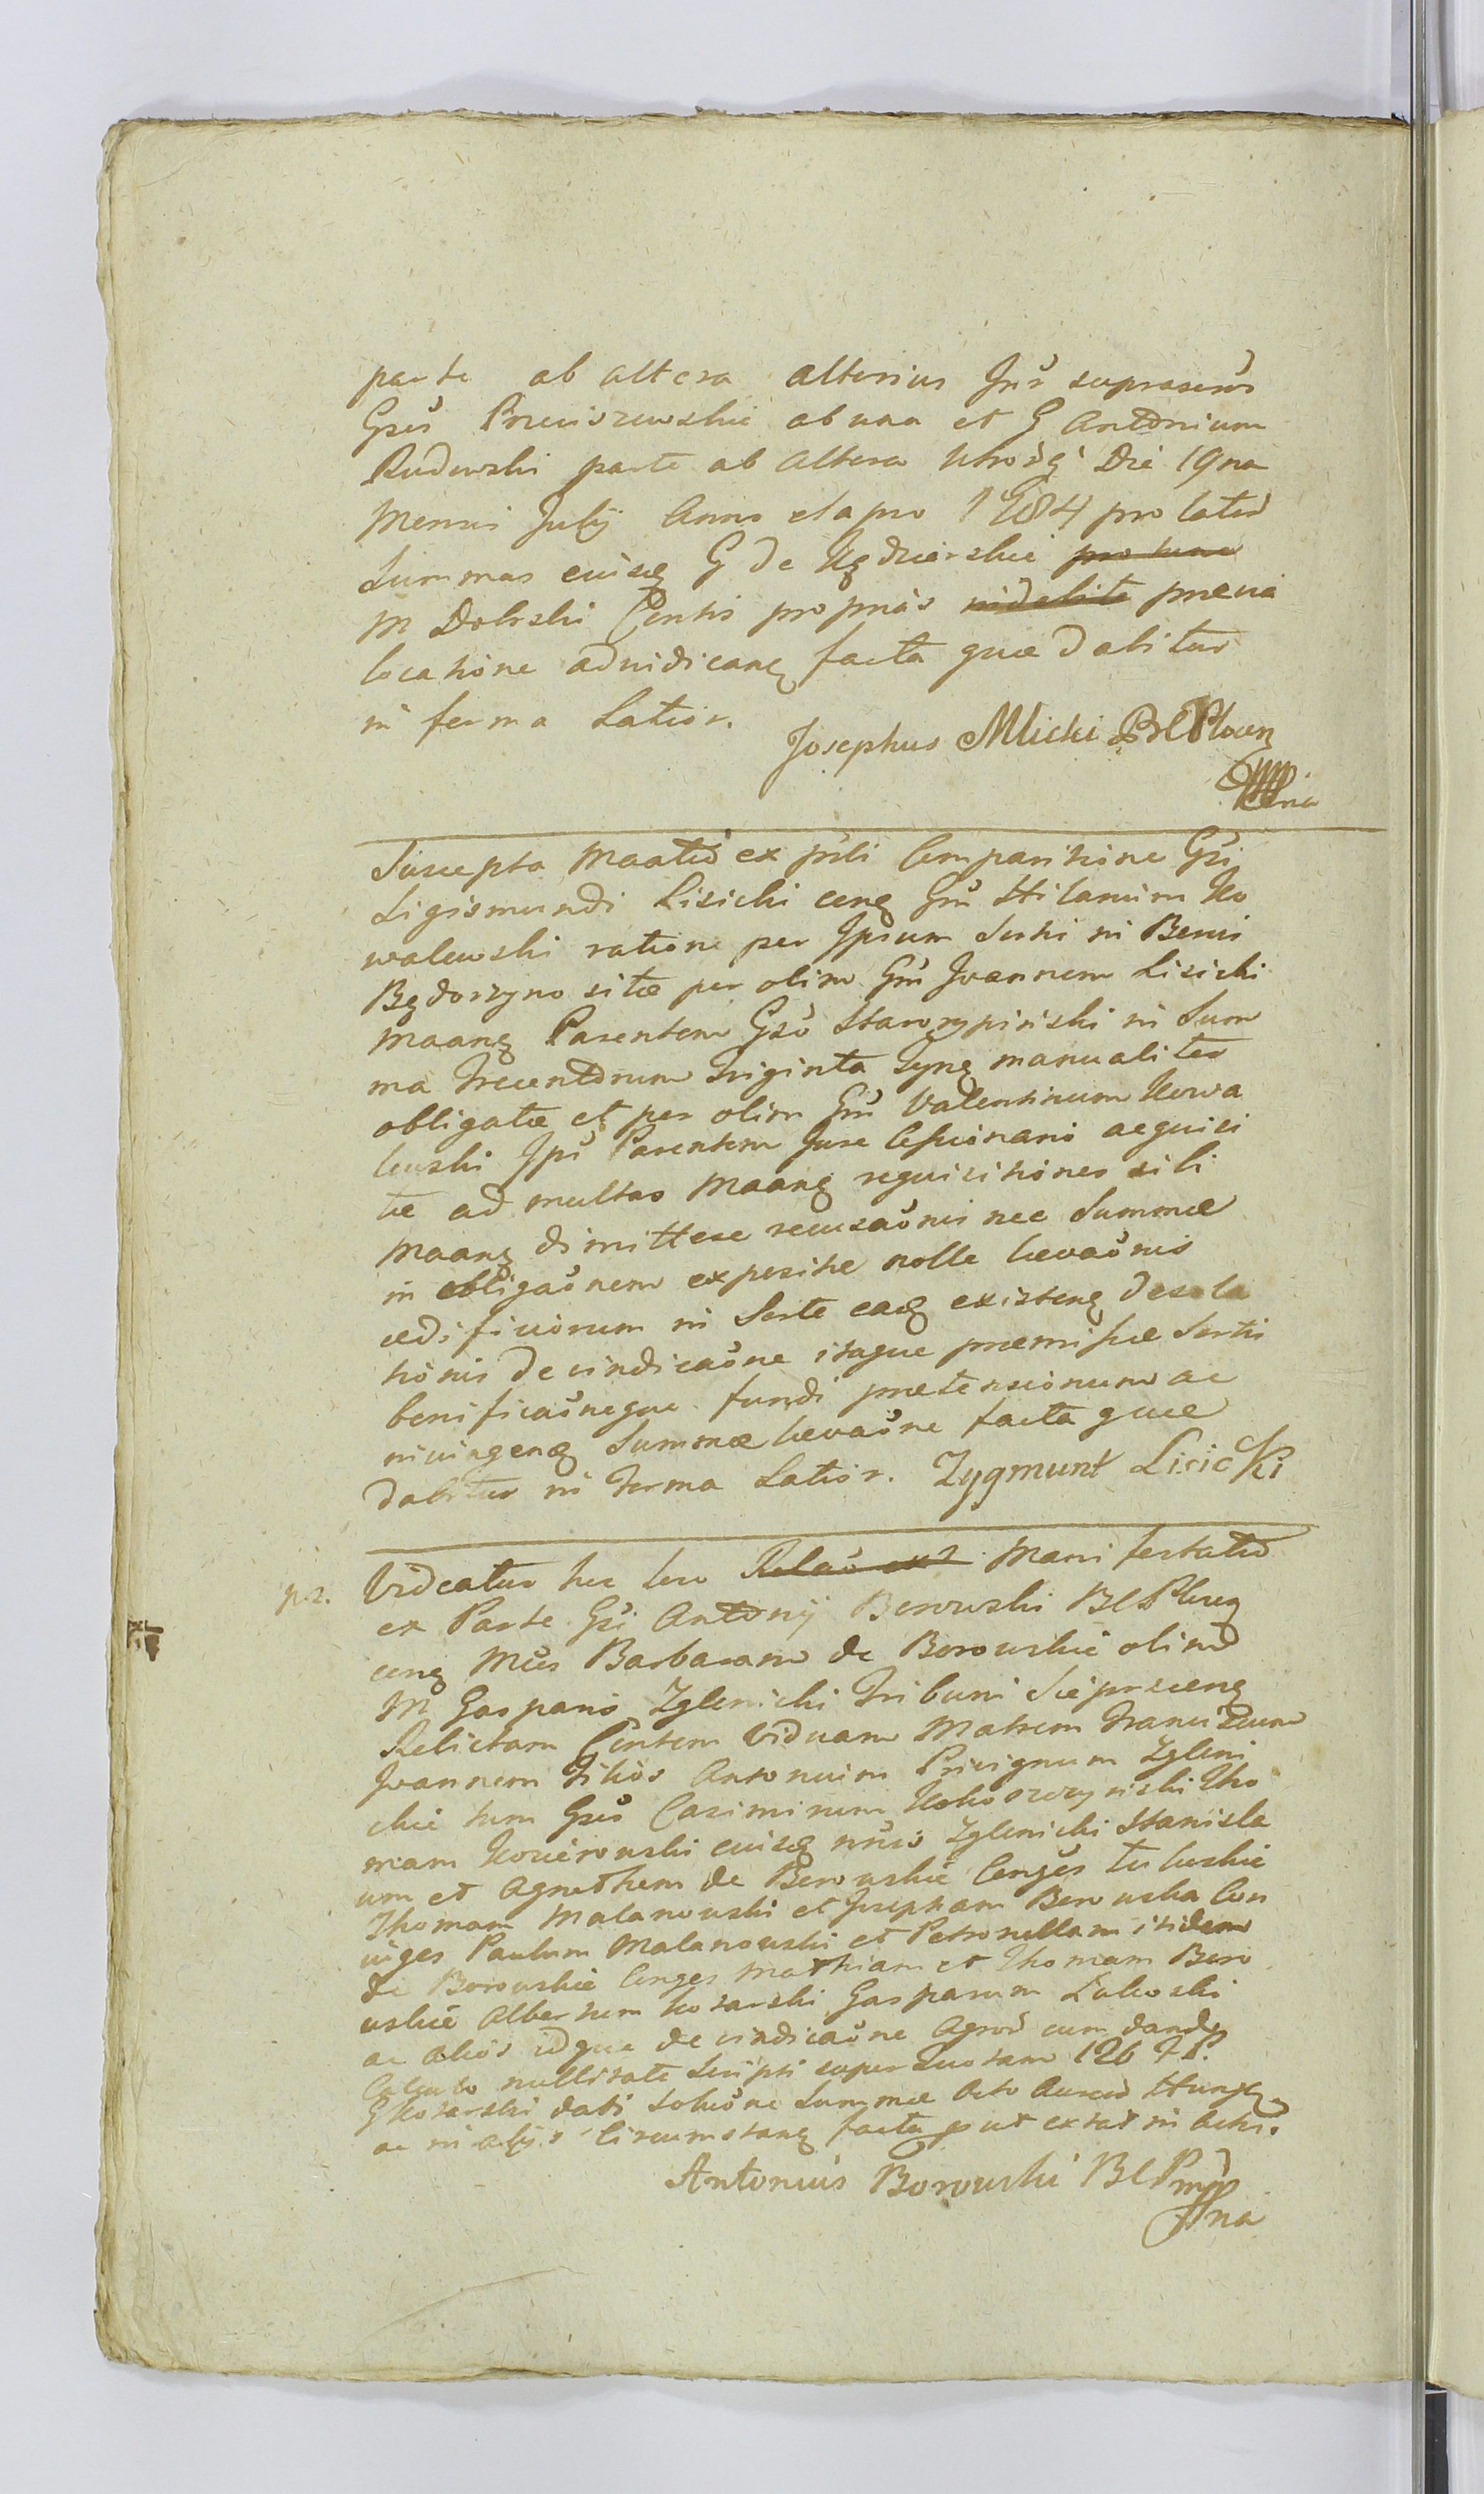 parte ab altera alterius Inr suprascris
Gsis Brzeiszewskie ab una et G Antonium
Rudowski parte ab altera utrosq Die 19na
Mensis July Anno elapso 1784 pro latis
Summas eiusq G de Kędzierskie pro tunc
M Dobrski Contis proprias indebite praevia
locatione adiudicanq facta quae dabitur
in ferma Latior.
Josephus Mlicki BCPlocen
mpria
Suscepta Maatio ex psli Comparitione Gsi
Sigismundi Lisicki conq Gm Hilarium Ko
walewski ratione per Ipsum Sortis in Bonis
Będorzyno sitæ per olim Gm Joannem Lisicki
Maanq Parentem Gso Starorypiński in Sum
ma Trecentorum Triginta Tynq manualiter
obligatæ et per olim Gm Valentinum Kowa
lewski Ipsi Parentem Jure Cessionario acquisi
tæ ad multas Maanq requisitiones sibi
Maanq dimittere recusaõnis nec Summæ
in obligaõnem expositæ nolle levaõnis
ædificiorum in Sorte eaq existenq desola
tionis de vindicaõne itaque præmissæ Sortis
bonificaõneque fundi prætensionum ac
iniungenq Summæ levaõne facta quæ
dabitur in Forma Latior. Zygmunt Lisicki
pz. Videatur hic loco Relaõ ex Manifestatio
ex Parte Gsi Antonij Borowski BCPlocq
conq Mcis Barbaram de Borowskie olim
M Gaspari Zglenicki Tribuni Sieprcenq
Relictam Contem Viduam Matrem Franciscum
Joannem Filios Antonium Privignum Zgleni
ckie tum Gsis Casimirum Kokoszczyński Tho
mam Kozierowski eiusq nris Zglenicki Stanisla
um et Agnethem de Borowskie Conges Tuluskie
Thomam Malanowski et Josepham Borowska Con
iuges Paulum Malanowski et Petronellam itidem
de Borowskie Conges Mathiam et Thomam Boro
wskie Albertum Kosarski Gasparum Lukoski
ac alios idque de vindicaõne Agror cum dando
Calculo nullitate Scripti super Quotam 126 FP.
G Kosarski dati Soluõne Summæ Octo Aureor Hungq
ac in alijs Circumstanq facta put extat in Actis.
Antonius Borowski BCPmp
pna